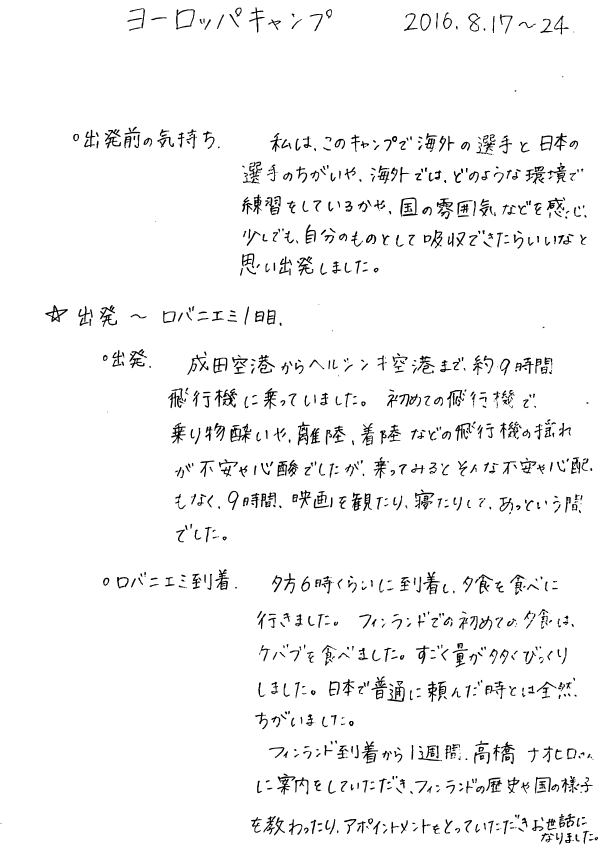 ヨーロッパキャンプ 2016.8.17～24
○出発前の気持ち. 私は、このキャンプで海外の選手と日本の
選手のちがいや、海外では、どのような環境で
練習をしているかや、国の雰囲気などを感じ、
少しでも、自分のものとして吸収できたらいいなと
思い出発しました。
☆出発～ロバニエミ1日目.
○出発. 成田空港からヘルシンキ空港まで、約9時間
飛行機に乗っていました。初めての飛行機で、
乗り物酔いや、離陸、着陸などの飛行機の揺れ
が不安や心酸でしたが、乗ってみるとそんな不安や心配
もなく、9時間、映画を観たり、寝たりして、あっという間
でした。
○ロバニエミ到着. 夕方6時くらいに到着し、夕食を食べに
行きました。フィンランドでの初めての夕食は、
ケバブを食べました。すごく量が多くびっくり
しました。日本で普通に頼んだ時とは全然
ちがいました。
フィンランド到着から1週間、高橋ナオヒロさん
に案内をしていただき、フィンランドの歴史や国の様子
を教わったり、アポイントメントをとっていただきお世話に
なりました。